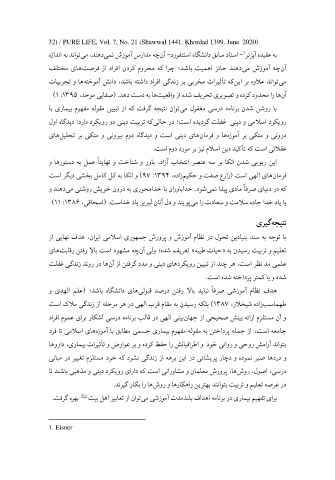 32) / PURE LIFE, Vol. 7, No. 21 (Shawwal 1441. Khordad 1399. June 2020)
به عقیده آیزنر¹- استاد سابق دانشگاه استنفورد- آن‌چه مدارس آموزش نمی‌دهند، می‌تواند به اندازه
آن‌چه آموزش می‌دهند حائز اهمیت باشد؛ چرا که محروم کردن افراد از فرصت‌های مختلف
می‌تواند علاوه بر این‌که تأثیرات مخربی بر زندگی افراد داشته باشد، دانش آموخته‌ها و تجربیات
آن‌ها را محدود کرده و تصویری تحریف شده از واقعیت‌ها به دست دهد. (صفایی موحد، ۱۳۹۵: ۱)
با روشن شدن برنامه درسی مغفول می‌توان نتیجه گرفت که از تبیین مقوله مفهوم بیماری با
رویکرد اسلامی و دینی غفلت گردیده است؛ در حالی‌که تربیت دینی دو رویکرد دارد: دیدگاه اول
درونی و متکی بر آموزه‌ها و فرمان‌های دینی است و دیدگاه دوم بیرونی و متکی بر تحلیل‌های
عقلانی است که تأکید دین اسلام نیز بر مورد دوم است.
این رویی شدن اتکا بر سه عنصر انتخاب آزاد، باور و شناخت و نهایتاً عمل به دستورها و
فرمان‌های الهی است (زارع صفت و حکیم‌زاده، ۱۳۹۴: ۹۷) و اتکا به کل کامل بخشی دیگر است
که در دنیای صرفاً مادی پیدا نمی‌شود. خداباوران با خدامحوری به درون خویش روشنی می‌دهند و
با یاد خدا جاده سلامت و سعادت را می‌پویند و دل آنان لبریز یاد خداست. (اسحاقی، ۱۳۸۶: ۱۱)
نتیجه‌گیری
با توجه به سند بنیادین تحول در نظام آموزش و پرورش جمهوری اسلامی ایران، هدف نهایی از
تعلیم و تربیت رسیدن به «حیات طیبه» تعریف شده؛ ولی آن‌چه مشهود است بالا رفتن رقابت‌های
علمی مد نظر است، هر چند از تبیین رویکردهای دینی و مدد گرفتن از آن‌ها در روند زندگی غفلت
شده و یا کمتر پرداخته شده است.
هدف نظام آموزشی صرفاً نباید بالا رفتن درصد قبولی‌های دانشگاه باشد؛ (علم الهدی و
طهماسب‌زاده شیخلار، ۱۳۸۷) بلکه رسیدن به مقام قرب الهی در هر مرحله از زندگی ملاک است
و آن مستلزم ارائه بینش صحیحی از جهان‌بینی الهی در قالب برنامه درسی آشکار برای عموم افراد
جامعه است، از جمله پرداختن به مقوله مفهوم بیماری جسمی مطابق با آموزه‌های اسلامی تا فرد
بتواند آرامش روحی و روانی خود و اطرافیانش را حفظ کرده و بر عوارض و تأثیرات بیماری، داروها
و دردها صبر نموده و دچار پریشانی در این برهه از زندگی نشود که خود مستلزم تغییر در مبانی
درسی، اصول، روش‌ها، پرورش معلمان و مشاورانی است که دارای رویکرد دینی و مذهبی باشند تا
در عرصه تعلیم و تربیت بتوانند بهترین راهکارها و روش‌ها را بکار گیرند.
برای تفهیم بیماری در برنامه اهداف بلندمدت آموزشی می‌توان از تعابیر اهل بیت بهره گرفت.
1. Eisner